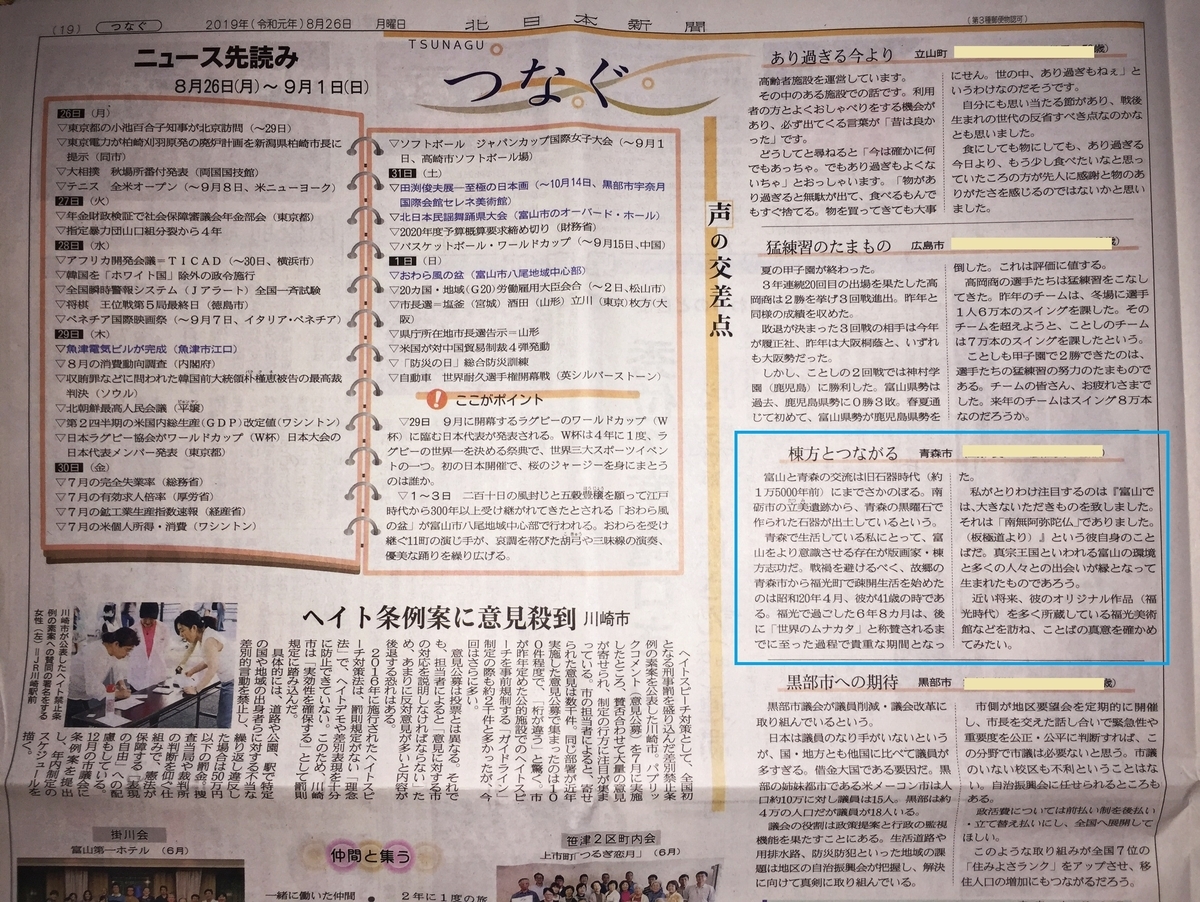 (19) つなぐ 2019年(令和元年)8月26日 月曜日 北日本新聞 (第3種郵便物認可)
ニュース先読み
8月26日(月)~9月1日(日)
TSUNAGU
つなぐ
26日(月)
▽東京都の小池百合子知事が北京訪問(~29日)
▽東京電力が柏崎刈羽原発の廃炉計画を新潟県柏崎市長に
提示(同市)
▽大相撲 秋場所番付発表(両国国技館)
▽テニス 全米オープン(~9月8日、米ニューヨーク)
27日(火)
▽年金財政検証で社会保障審議会年金部会(東京都)
▽指定暴力団山口組分裂から4年
28日(水)
▽アフリカ開発会議=TICAD(~30日、横浜市)
▽韓国を「ホワイト国」除外の政令施行
▽全国瞬時警報システム(Jアラート)全国一斉試験
▽将棋 王位戦第5局最終日(徳島市)
▽ベネチア国際映画祭(~9月7日、イタリア・ベネチア)
29日(木)
▽魚津電気ビルが完成(魚津市江口)
▽8月の消費動向調査(内閣府)
▽収賄罪などに問われた韓国前大統領朴槿恵被告の最高裁
判決(ソウル)
▽北朝鮮最高人民会議(平壌)
▽第2四半期の米国内総生産(GDP)改定値(ワシントン)
▽日本ラグビー協会がワールドカップ(W杯)日本大会の
日本代表メンバー発表(東京都)
30日(金)
▽7月の完全失業率(総務省)
▽7月の有効求人倍率(厚労省)
▽7月の鉱工業生産指数速報(経産省)
▽7月の米個人所得・消費(ワシントン)
▽ソフトボール ジャパンカップ国際女子大会(~9月1
日、高崎市ソフトボール場)
31日(土)
▽田渕俊夫展―至極の日本画(~10月14日、黒部市宇奈月
国際会館セレネ美術館)
▽北日本民謡舞踊県大会(富山市のオーバード・ホール)
▽2020年度予算概算要求締め切り(財務省)
▽バスケットボール・ワールドカップ(~9月15日、中国)
1日(日)
▽おわら風の盆(富山市八尾地域中心部)
▽20カ国・地域(G20)労働雇用大臣会合(~2日、松山市)
▽市長選=塩釜(宮城)酒田(山形)立川(東京)枚方(大
阪)
▽県庁所在地市長選告示=山形
▽米国が対中国貿易制裁4弾発動
▽「防災の日」総合防災訓練
▽自動車 世界耐久選手権開幕戦(英シルバーストーン)
! ここがポイント
▽29日 9月に開幕するラグビーのワールドカップ(W
杯)に臨む日本代表が発表される。W杯は4年に1度、ラ
グビーの世界一を決める祭典で、世界三大スポーツイベン
トの一つ。初の日本開催で、桜のジャージーを身にまとう
のは誰か。
▽1~3日 二百十日の風封じと五穀豊穣を願って江戸
時代から300年以上受け継がれてきたとされる「おわら風
の盆」が富山市八尾地域中心部で行われる。おわらを受け
継ぐ11町の演じ手が、哀調を帯びた胡弓や三味線の演奏、
優美な踊りを繰り広げる。
声の交差点
あり過ぎる今より 立山町
高齢者施設を運営しています。
その中のある施設での話です。利用
者の方とよくおしゃべりをする機会が
あり、必ず出てくる言葉が「昔は良か
った」です。
どうしてと尋ねると「今は確かに何
でもあっちゃ。でもあり過ぎもよくな
いちゃ」とおっしゃいます。「物があり
過ぎると無駄が出て、食べるもんで
もすぐ捨てる。物を買ってきても大事
にせん。世の中、あり過ぎもねぇ」と
いうわけなのだそうです。
自分にも思い当たる節があり、戦後
生まれの世代の反省すべき点なのかな
とも思いました。
食にしても物にしても、あり過ぎる
今日より、もう少し食べたいなと思っ
ていたころの方が先人に感謝と物のあ
りがたさを感じるのではないかと思い
ました。
猛練習のたまもの 広島市
夏の甲子園が終わった。
3年連続20回目の出場を果たした高
岡商は2勝を挙げ3回戦進出。昨年と
同様の成績を収めた。
敗退が決まった3回戦の相手は今年
が履正社、昨年は大阪桐蔭と、いずれ
も大阪勢だった。
しかし、ことしの2回戦では神村学
園(鹿児島)に勝利した。富山県勢は
過去、鹿児島県勢に0勝3敗。春夏通
じて初めて、富山県勢が鹿児島県勢を
倒した。これは評価に値する。
高岡商の選手たちは猛練習をこなし
てきた。昨年のチームは、冬場に選手
1人6万本のスイングを課した。その
チームを超えようと、ことしのチーム
は7万本のスイングを課したという。
ことしも甲子園で2勝できたのは、
選手たちの猛練習の努力のたまもので
ある。チームの皆さん、お疲れさまで
した。来年のチームはスイング8万本
なのだろうか。
棟方とつながる 青森市
富山と青森の交流は旧石器時代(約
1万5000年前)にまでさかのぼる。南
砺市の立美遺跡から、青森の黒曜石で
作られた石器が出土しているという。
青森で生活している私にとって、富
山をより意識させる存在が版画家・棟
方志功だ。戦禍を避けるべく、故郷の
青森市から福光町で疎開生活を始めた
のは昭和20年4月、彼が41歳の時であ
る。福光で過ごした6年8カ月は、後
に「世界のムナカタ」と称賛されるま
でに至った過程で貴重な期間となっ
た。
私がとりわけ注目するのは『富山で
は、大きないただきものを致しました。
それは「南無阿弥陀仏」でありました。
(板極道より)』という彼自身のこと
ばだ。真宗王国といわれる富山の環境
と多くの人々との出会いが縁となって
生まれたものであろう。
近い将来、彼のオリジナル作品(福
光時代)を多く所蔵している福光美術
館などを訪ね、ことばの真意を確かめ
てみたい。
黒部市への期待 黒部市
黒部市議会が議員削減・議会改革に
取り組んでいるという。
日本は議員のなり手がいないという
が、国・地方とも他国に比べて議員が
多すぎる。借金大国である要因だ。黒
部の姉妹都市である米メーコン市は人
口約10万に対し議員は15人。黒部は約
4万の人口だが議員が18人いる。
議会の役割は政策提案と行政の監視
機能を果たすことにある。生活道路や
用排水路、防災防犯といった地域の課
題は地区の自治振興会が把握し、解決
に向けて真剣に取り組んでいる。
市側が地区要望会を定期的に開催
し、市長を交えた話し合いで緊急性や
重要度を公正・公平に判断すれば、こ
の分野で市議は必要ないと思う。市議
のいない校区も不利ということはな
い。自治振興会に任せられるところも
ある。
政活費については前払い制を後払い
・立て替え払いにし、全国へ展開して
ほしい。
このような取り組みが全国7位の
「住みよさランク」をアップさせ、移
住人口の増加にもつながるだろう。
ヘイト条例案に意見殺到 川崎市
ヘイトスピーチ対策として、全国初
となる刑事罰を盛り込んだ差別禁止条
例の素案を公表した川崎市。パブリッ
クコメント(意見公募)を7月に実施
したところ、賛否合わせて大量の意見
が寄せられ、制定の行方に注目が集ま
っている。市の担当者によると、寄せ
られた意見は数千件。同じ部署が近年
実施した意見公募で集まったのは10
0件程度で、「桁が違う」と驚く。市
が昨年定めた公的施設でのヘイトスピ
ーチを事前規制する「ガイドライン」
制定の際も約2千件と多かったが、今
回はさらに多い。
意見公募は投票とは異なる。それで
も、担当者によると「意見に対する市
の対応を説明しなければならない」た
め、あまりに反対意見が多いと内容が
後退する恐れはある。
2016年に施行されたヘイトスピ
ーチ対策法は、罰則規定がない「理念
法」で、ヘイトデモや差別表現を十分
に防止できていない。このため、川崎
市は「実効性を確保する」として罰則
規定に踏み込んだ。
具体的には、道路や公園、駅で特定
の国や地域の出身者らに対する不当な
差別的言動を禁止し、
繰り返し違反し
た場合は50万円
以下の罰金。捜
査当局や裁判所
の判断を仰ぐ仕
組みで、憲法が
保障する「表現
の自由」への配
慮もしている。
12月の市議会に
条例案を提出
し、年内制定の
スケジュールを
描く。
川崎市が公表したヘイト禁止条
例の素案への賛同の署名をする
女性(左)=JR川崎駅前
掛川会
富山第一ホテル(6月)
仲間と集う
一緒に働いた仲間
2年に1度の旅
笹津2区町内会
上市町「つるぎ恋月」(6月)